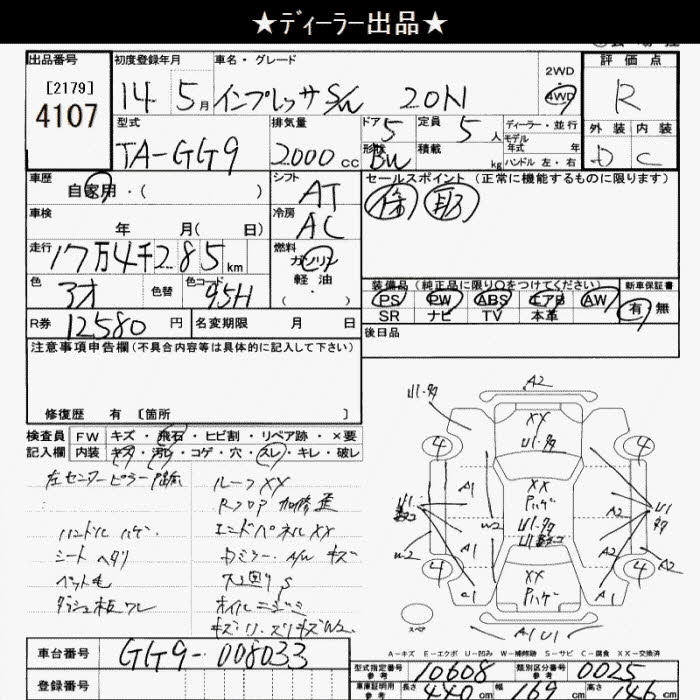 ★ディーラー出品★
出品番号 初度登録年月 車名・グレード 評価点
[2179]
4107
14年 5月 インプレッサS/W 20N
2WD
4WD
R
型式 排気量 ドア 5 定員 5人 ディーラー・並行
TA-GG9 2,000cc
形状 BW 積載 kg
モデル年式 年
ハンドル 左・右
外装 内装
D C
車歴 自家用・( )
シフト AT
セールスポイント(正常に機能するものに限ります)
車検 年 月( 日)
冷房 AC
走行 17万4千285km
燃料 ガソリン
軽油
・( )
色 色替 色コード 95H
装備品(純正品に限り○をつけてください) 新車保証書
PS PW ABS エアB AW 有・無
SR ナビ TV 本革
R券 12580円 名変期限 月 日
後日品
注意事項申告欄(不具合内容等は具体的に記入して下さい)
修復歴 有 [箇所 ]
検査員記入欄
FW キズ・飛石・ヒビ割・リペア跡・×要
内装 キズ・汚レ・コゲ・穴・スレ・キレ・破レ
左センターピラー
ルーフXX
Rフロア
ハンドル ハゲ
エンドパネルXX
シート ヘタリ
ペット毛
A2
XX
U1・タ
4 4
A1 A2
XX
Pハゲ
U1・タ
W2 W2
A1 A2
4 4
XX
Pハゲ
A1
スペア
A1 U1
A=キズ E=エクボ U=凹み W=補修跡 S=サビ C=腐食 XX=交換済
車台番号 GG9-008033
登録番号
型式指定番号 参考 10608 類別区分番号 参考 0025
車庫証明用 参考 長さ 440cm 幅 169cm 高さ 146cm